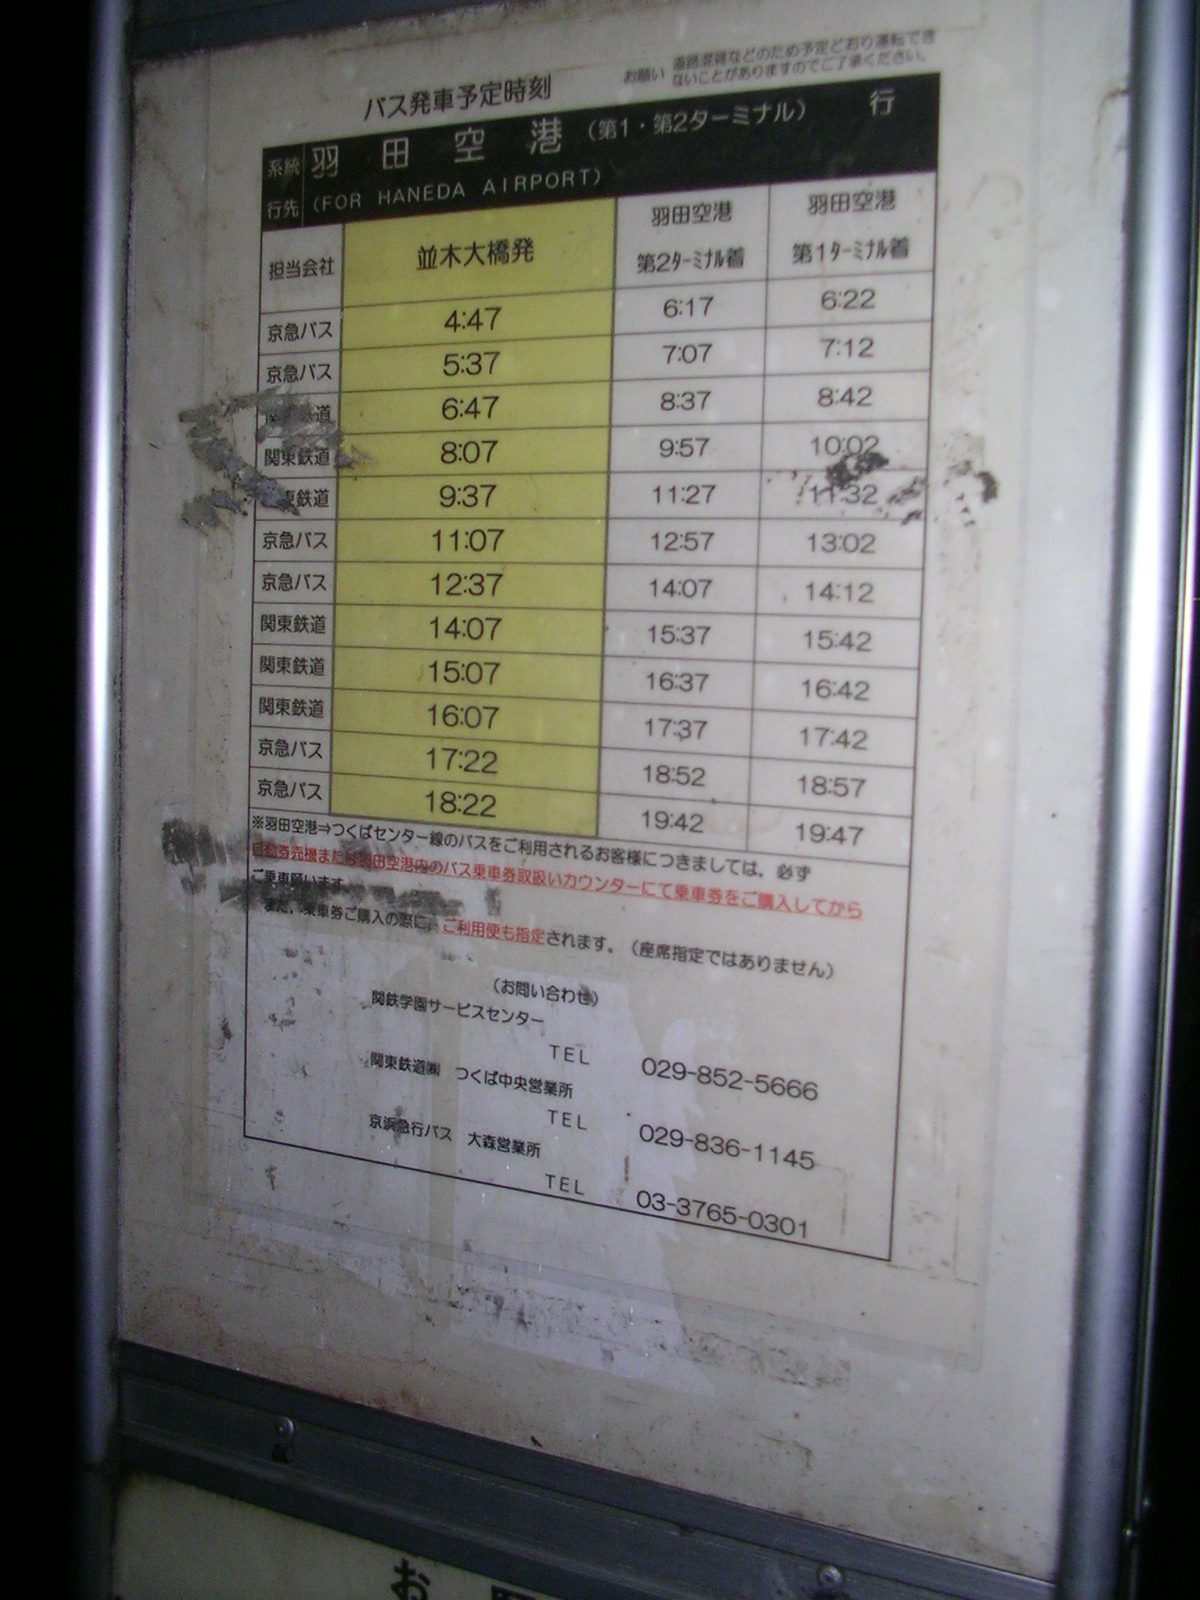 バス発車予定時刻
お願い 道路混雑などのため予定どおり運転でき
ないことがありますのでご了承ください。
系統 羽田空港（第1・第2ターミナル） 行
行先 (FOR HANEDA AIRPORT)
担当会社 並木大橋発 羽田空港 第2ﾀｰﾐﾅﾙ着 羽田空港 第1ﾀｰﾐﾅﾙ着
京急バス 4:47 6:17 6:22
京急バス 5:37 7:07 7:12
鉄道 6:47 8:37 8:42
関東鉄道 8:07 9:57 10:02
東鉄道 9:37 11:27 11:32
京急バス 11:07 12:57 13:02
京急バス 12:37 14:07 14:12
関東鉄道 14:07 15:37 15:42
関東鉄道 15:07 16:37 16:42
関東鉄道 16:07 17:37 17:42
京急バス 17:22 18:52 18:57
京急バス 18:22 19:42 19:47
※羽田空港⇒つくばセンター線のバスをご利用されるお客様につきましては、必ず
自動券売機または羽田空港内のバス乗車券取扱いカウンターにて乗車券をご購入してから
ご乗車願います。
また、乗車券ご購入の際に、ご利用便も指定されます。（座席指定ではありません）
（お問い合わせ）
関鉄学園サービスセンター
TEL 029-852-5666
関東鉄道㈱ つくば中央営業所
TEL 029-836-1145
京浜急行バス 大森営業所
TEL 03-3765-0301
お